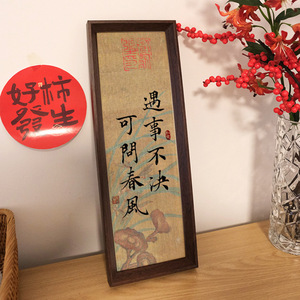 遇事不决
可問春風
好柿
發生